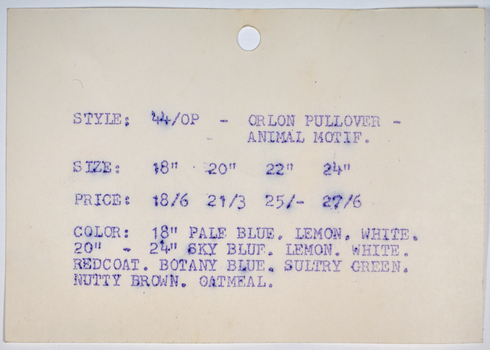 STYLE: 44/OP - ORLON PULLOVER -
- ANIMAL MOTIF.
SIZE: 18" 20" 22" 24"
PRICE: 18/6 21/3 25/- 27/6
COLOR: 18" PALE BLUE. LEMON. WHITE.
20" - 24" SKY BLUE. LEMON. WHITE.
REDCOAT. BOTANY BLUE. SULTRY GREEN.
NUTTY BROWN. OATMEAL.